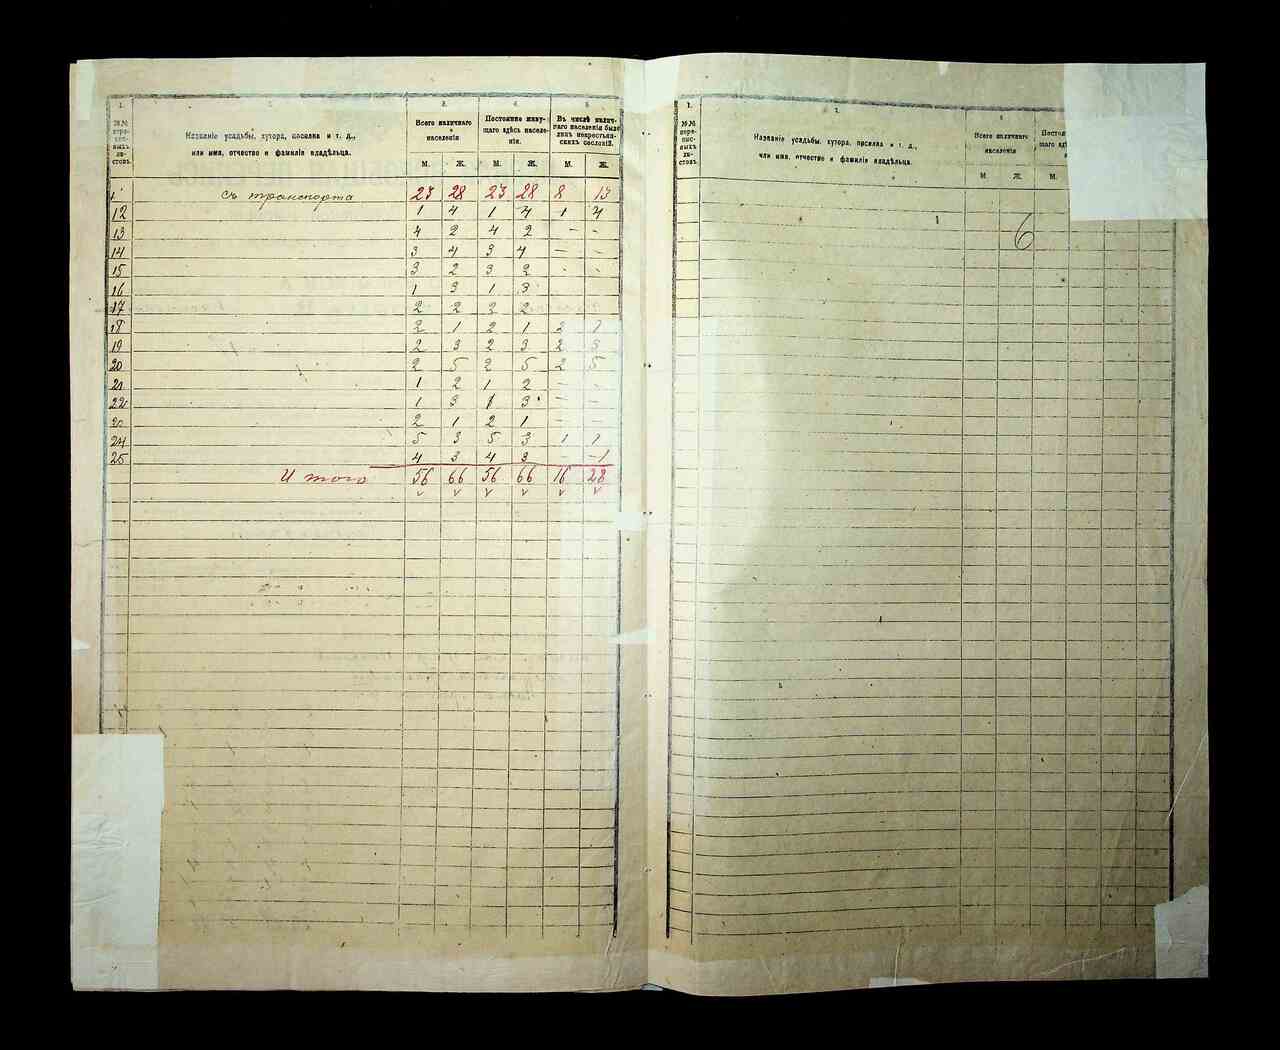 1.
2.
3.
4.
5.
№№ пере-
пис-
ныхъ
ли-
стовъ.
Названіе усадьбы, хутора, поселка и т. д.,
или имя, отчество и фамилія владѣльца.
Всего наличнаго
населенія
Постоянно живу-
щаго здѣсь населе-
нія.
Въ числѣ налич-
наго населенія было
лицъ некрестьян-
скихъ сословій.
М. Ж. М. Ж. М. Ж.
съ транспорта 23 28 23 28 8 13
12 1 4 1 4 1 4
13 4 2 4 2 - -
14 3 4 3 4 - -
15 3 2 3 2 - -
16 1 3 1 3
17 2 2 2 2
18 2 1 2 1 2 1
19 2 3 2 3 2 3
20 2 5 2 5 2 5
21 1 2 1 2 - -
22 1 3 1 3 - -
2 1 2 1 - -
24 5 3 5 3 1 1
25 4 3 4 3 - -1
Итого 56 66 56 66 16 28
1.
2.
№№ пере-
пис-
ныхъ
ли-
стовъ.
Названіе усадьбы, хутора, поселка и т. д.,
или имя, отчество и фамилія владѣльца.
Всего наличнаго
населенія
М. Ж. М.
6